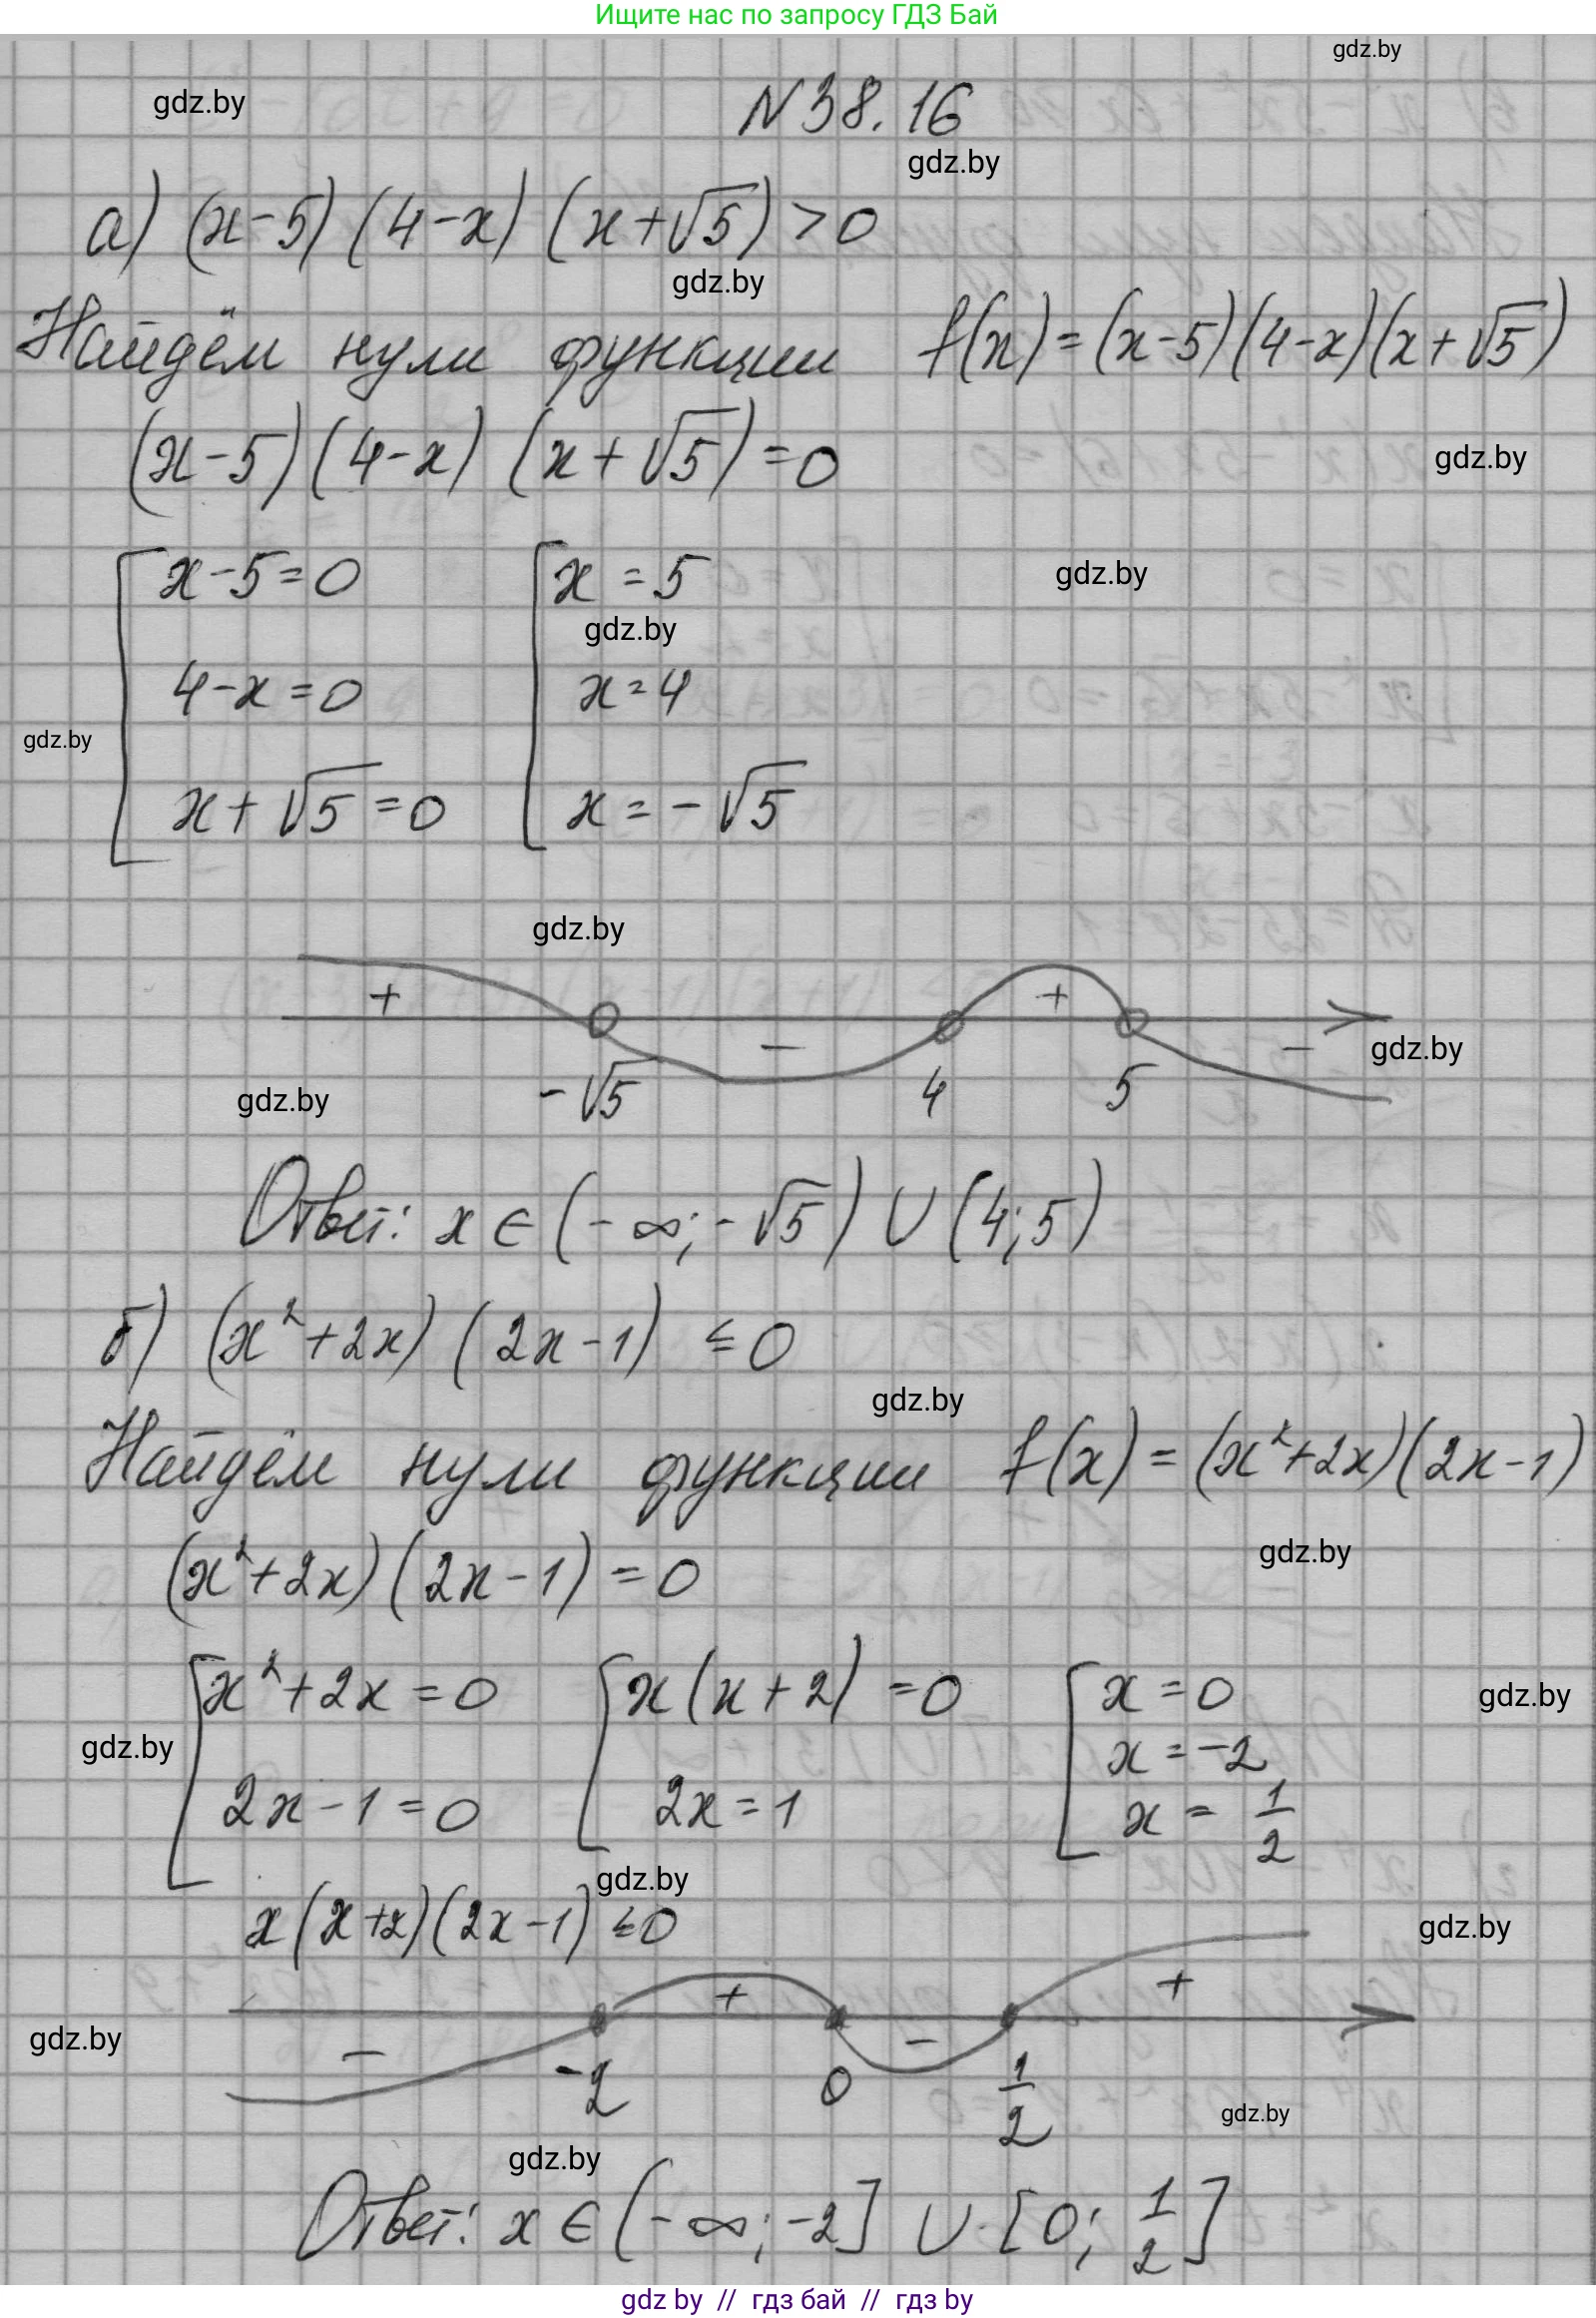 Ищите нас по запросу ГДЗ Бай
gdz.by
gdz.by
N 38.16
gdz.by
а) (x-5) (4-x) (x+√5) >0
gdz.by
Найдём нули функции f(x)=(x-5)(4-x)(x+√5)
(x-5)(4-x) (x+√5)=0
gdz.by
x-5=0 x=5
gdz.by
gdz.by
4-x=0 x=4
gdz.by
x+√5=0 x=-√5
gdz.by
+ - + -
gdz.by
-√5 4 5
gdz.by
Ответ: x∈(-∞;-√5) ∪ (4;5)
б) (x²+2x) (2x-1) ≤0
gdz.by
Найдём нули функции f(x)=(x²+2x)(2x-1)
(x²+2x)(2x-1)=0
gdz.by
x²+2x=0 x(x+2)=0 x=0
gdz.by
x=-2
gdz.by
2x-1=0 2x=1 x=1/2
gdz.by
x(x+2)(2x-1)≤0
gdz.by
- + - +
gdz.by
-2 0 1/2
gdz.by
gdz.by
Ответ: x∈(-∞;-2] ∪ [0; 1/2]
gdz by // гдз бай // гдз by